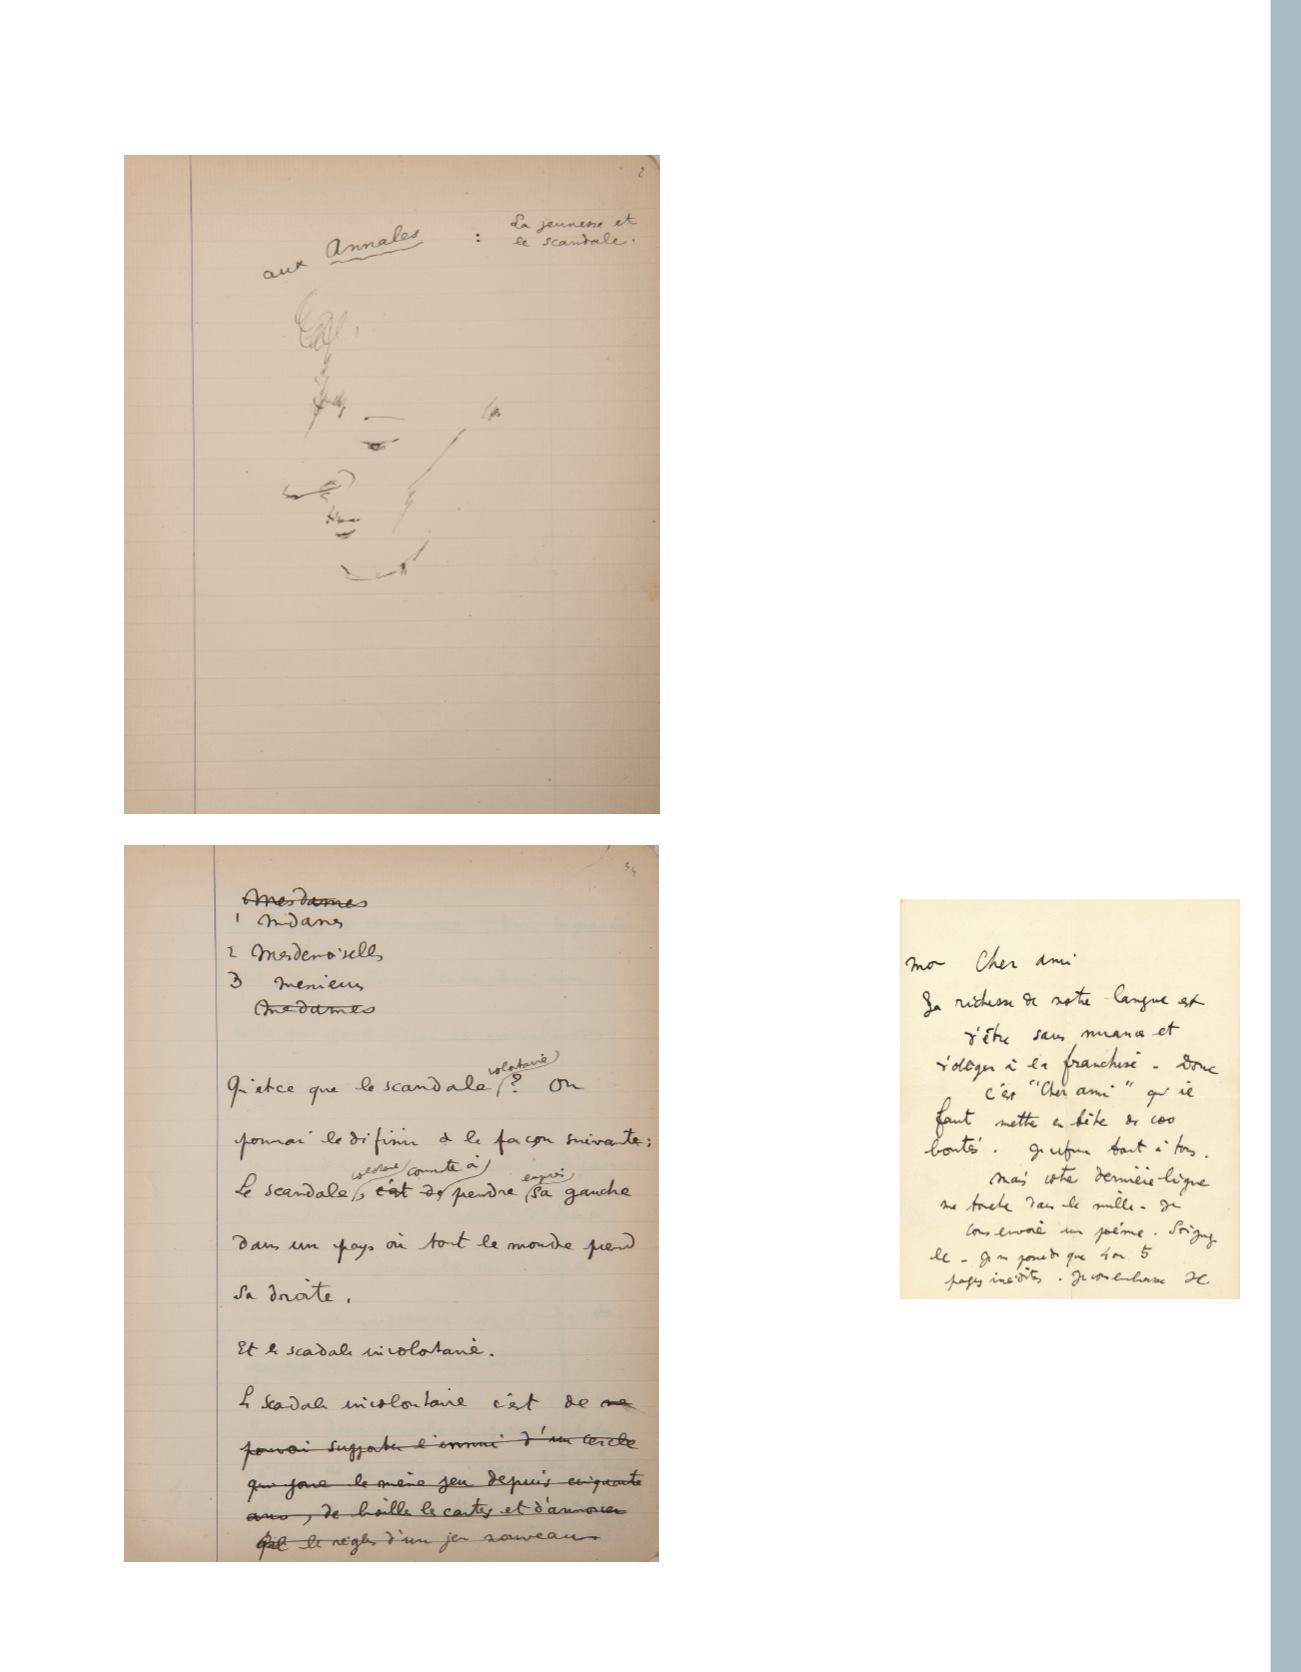 2
La jeunesse et
aux Annales : le scandale.
34
Mesdames
1 Mdames
2 Mesdemoiselles
3 Messieurs
Mesdames
volontaire
Qu'est ce que le scandale ? On
pourrai le définir de la façon suivante :
volontaire consiste à
Le scandale, c'est de prendre sa gauche
dans un pays où tout le monde prend
sa droite.
Et le scadale involontaire.
Le scadale involontaire c'est de ne
pouvoir supporter l'ennui d'un cercle
qui joue le même jeu depuis cinquante
ans, de brouiller les cartes et d'annoncer
les règles d'un jeu nouveau
mon Cher ami
La richesse de notre langue est
d'être sans nuance et
d'obliger à la franchise - Donc
c'est "Cher ami" qu'il
faut mettre en tête de vos
bontés. Je refuse tout à tous.
Mais votre dernière ligne
me touche dans le mille - Je
vous envoie un poème. Soignez
le - Je ne possède que 4 ou 5
pages inédites. Je vous embrasse JC